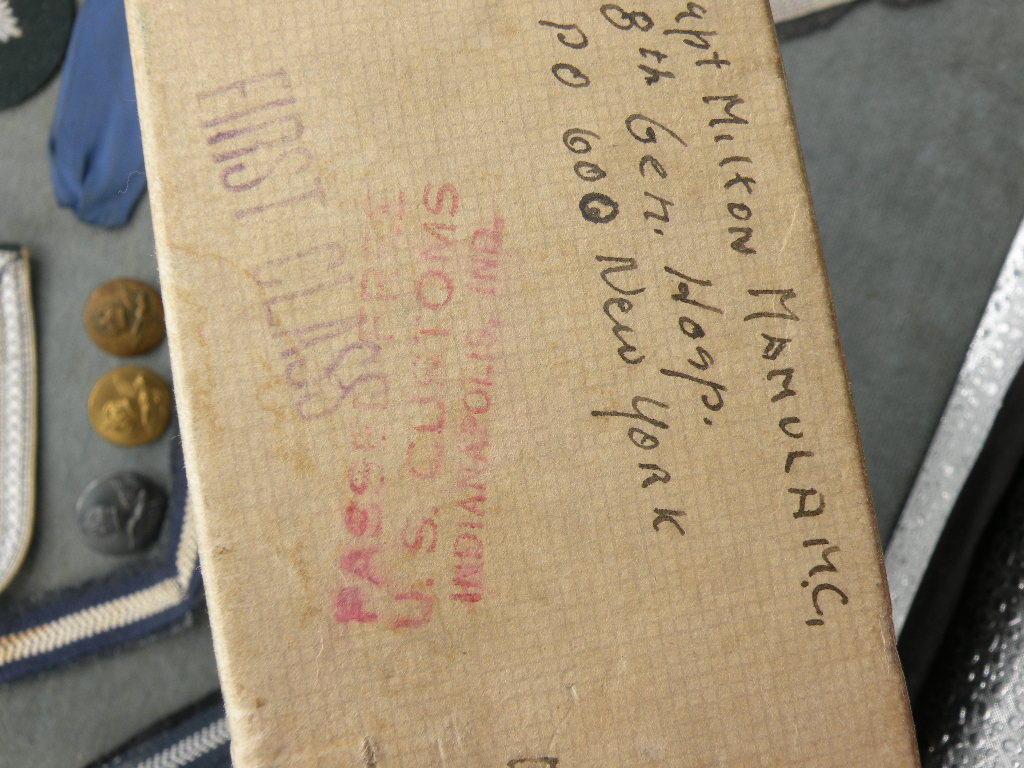 apt Milton Mamula M.C.
8th Gen. Hosp.
PO 600 New York
FIRST CLASS
PASSED FREE
U.S. CUSTOMS
INDIANAPOLIS, IND.